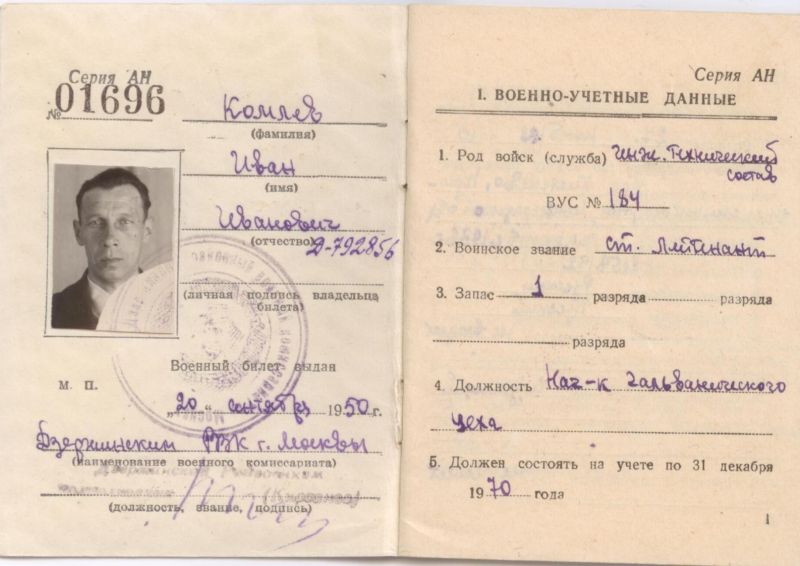 Серия АН
№ 01696
Комлев
(фамилия)
Иван
(имя)
Иванович
(отчество) Д-792856
(личная подпись владельца
билета)
Военный билет выдан
М. П.
„20“ сентября 1950 г.
Дзержинским РВК г. Москвы
(наименование военного комиссариата)
(должность, звание, подпись)
Серия АН
I. ВОЕННО-УЧЕТНЫЕ ДАННЫЕ
1. Род войск (служба) инж. технический
состав
ВУС № 184
2. Воинское звание ст. лейтенант
3. Запас 1 разряда разряда
разряда
4. Должность Нач-к гальванического
цеха
5. Должен состоять на учете по 31 декабря
1970 года
1